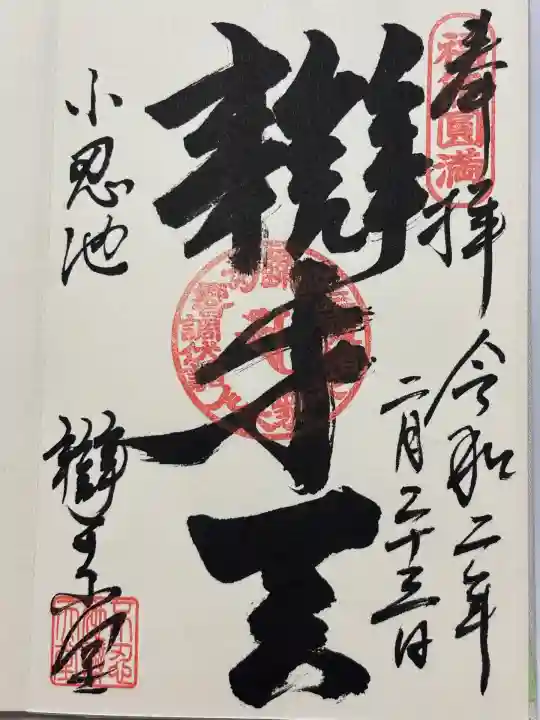 奉拝
令和二年
二月二十三日
辯才天
小忍池
辯天堂